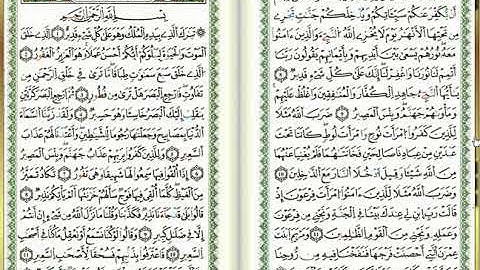 أَن يُكَفِّرَ عَنكُمْ سَيِّـَٔاتِكُمْ وَيُدْخِلَكُمْ جَنَّٰتٍ تَجْرِى
مِن تَحْتِهَا ٱلْأَنْهَٰرُ يَوْمَ لَا يُخْزِى ٱللَّهُ ٱلنَّبِىَّ وَٱلَّذِينَ ءَامَنُوا۟
مَعَهُۥ نُورُهُمْ يَسْعَىٰ بَيْنَ أَيْدِيهِمْ وَبِأَيْمَٰنِهِمْ يَقُولُونَ رَبَّنَآ
أَتْمِمْ لَنَا نُورَنَا وَٱغْفِرْ لَنَآ إِنَّكَ عَلَىٰ كُلِّ شَىْءٍ قَدِيرٌ ٨
يَٰٓأَيُّهَا ٱلنَّبِىُّ جَٰهِدِ ٱلْكُفَّارَ وَٱلْمُنَٰفِقِينَ وَٱغْلُظْ عَلَيْهِمْ
وَمَأْوَىٰهُمْ جَهَنَّمُ وَبِئْسَ ٱلْمَصِيرُ ٩ ضَرَبَ ٱللَّهُ مَثَلًا لِّلَّذِينَ
كَفَرُوا۟ ٱمْرَأَتَ نُوحٍ وَٱمْرَأَتَ لُوطٍ كَانَتَا تَحْتَ
عَبْدَيْنِ مِنْ عِبَادِنَا صَٰلِحَيْنِ فَخَانَتَاهُمَا فَلَمْ يُغْنِيَا عَنْهُمَا
مِنَ ٱللَّهِ شَيْـًٔا وَقِيلَ ٱدْخُلَا ٱلنَّارَ مَعَ ٱلدَّٰخِلِينَ ١٠
وَضَرَبَ ٱللَّهُ مَثَلًا لِّلَّذِينَ ءَامَنُوا۟ ٱمْرَأَتَ فِرْعَوْنَ إِذْ
قَالَتْ رَبِّ ٱبْنِ لِى عِندَكَ بَيْتًا فِى ٱلْجَنَّةِ وَنَجِّنِى مِن فِرْعَوْنَ
وَعَمَلِهِۦ وَنَجِّنِى مِنَ ٱلْقَوْمِ ٱلظَّٰلِمِينَ ١١ وَمَرْيَمَ ٱبْنَتَ
عِمْرَٰنَ ٱلَّتِىٓ أَحْصَنَتْ فَرْجَهَا فَنَفَخْنَا فِيهِ مِن رُّوحِنَا
بِسْمِ ٱللَّهِ ٱلرَّحْمَٰنِ ٱلرَّحِيمِ
تَبَٰرَكَ ٱلَّذِى بِيَدِهِ ٱلْمُلْكُ وَهُوَ عَلَىٰ كُلِّ شَىْءٍ قَدِيرٌ ١ ٱلَّذِى خَلَقَ
ٱلْمَوْتَ وَٱلْحَيَوٰةَ لِيَبْلُوَكُمْ أَيُّكُمْ أَحْسَنُ عَمَلًا وَهُوَ ٱلْعَزِيزُ ٱلْغَفُورُ ٢
ٱلَّذِى خَلَقَ سَبْعَ سَمَٰوَٰتٍ طِبَاقًا مَّا تَرَىٰ فِى خَلْقِ ٱلرَّحْمَٰنِ مِن
تَفَٰوُتٍ فَٱرْجِعِ ٱلْبَصَرَ هَلْ تَرَىٰ مِن فُطُورٍ ٣ ثُمَّ ٱرْجِعِ ٱلْبَصَرَ كَرَّتَيْنِ
يَنقَلِبْ إِلَيْكَ ٱلْبَصَرُ خَاسِئًا وَهُوَ حَسِيرٌ ٤ وَلَقَدْ زَيَّنَّا ٱلسَّمَآءَ
ٱلدُّنْيَا بِمَصَٰبِيحَ وَجَعَلْنَٰهَا رُجُومًا لِّلشَّيَٰطِينِ وَأَعْتَدْنَا لَهُمْ عَذَابَ
ٱلسَّعِيرِ ٥ وَلِلَّذِينَ كَفَرُوا۟ بِرَبِّهِمْ عَذَابُ جَهَنَّمَ وَبِئْسَ ٱلْمَصِيرُ
٦ إِذَآ أُلْقُوا۟ فِيهَا سَمِعُوا۟ لَهَا شَهِيقًا وَهِىَ تَفُورُ ٧ تَكَادُ تَمَيَّزُ
مِنَ ٱلْغَيْظِ كُلَّمَآ أُلْقِىَ فِيهَا فَوْجٌ سَأَلَهُمْ خَزَنَتُهَآ أَلَمْ يَأْتِكُمْ نَذِيرٌ ٨
قَالُوا۟ بَلَىٰ قَدْ جَآءَنَا نَذِيرٌ فَكَذَّبْنَا وَقُلْنَا مَا نَزَّلَ ٱللَّهُ مِن شَىْءٍ إِنْ أَنتُمْ
إِلَّا فِى ضَلَٰلٍ كَبِيرٍ ٩ وَقَالُوا۟ لَوْ كُنَّا نَسْمَعُ أَوْ نَعْقِلُ مَا كُنَّا فِىٓ أَصْحَٰبِ
ٱلسَّعِيرِ ١٠ فَٱعْتَرَفُوا۟ بِذَنۢبِهِمْ فَسُحْقًا لِّأَصْحَٰبِ ٱلسَّعِيرِ ١١